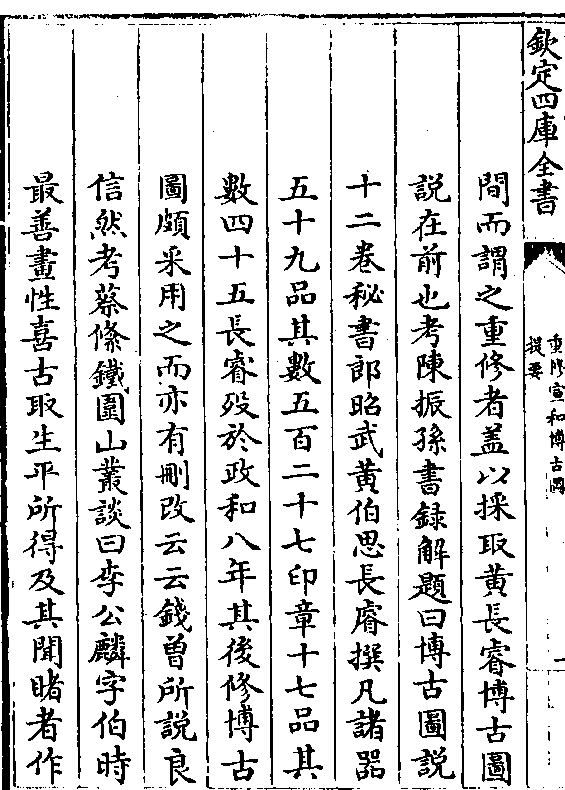 欽定四庫全書
重修宣和博古圖
提要
一
間而謂之重修者蓋以採取黃長睿博古圖
說在前也考陳振孫書録解題曰博古圖說
十二卷秘書郎昭武黃伯思長睿撰凡諸器
五十九品其數五百二十七印章十七品其
數四十五長睿歿於政和八年其後修博古
圖頗采用之而亦有刪改云云錢曽所說良
信然考蔡絛鐵圍山叢談曰李公麟字伯時
最善畫性喜古取生平所得及其聞睹者作